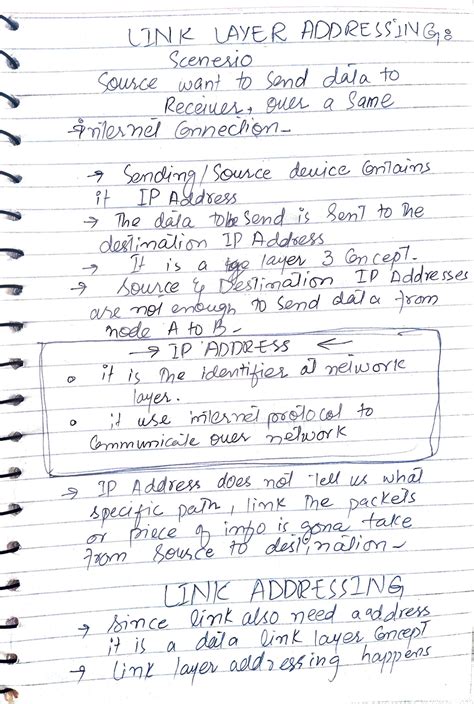 LINK LAYER ADDRESSING:
Scenerio
Source want to send data to
Receiver, over a Same
internet Connection-
→ Sending/Source device Contains
it IP Address
→ The data tobe Send is Sent to the
destination IP Address
→ It is a layer 3 Concept.
→ Source & Destination IP Addresses
are not enough to Send data from
node A to B-
→ IP ADDRESS ←
• it is the identifier at network
layer.
• it use internet protocol to
Communicate over network
→ IP Address does not tell us what
specific path, link the packets
or piece of info is gona take
from source to destination-
LINK ADDRESSING
→ Since link also need a address
it is a data link layer Concept
→ Link layer addressing happens